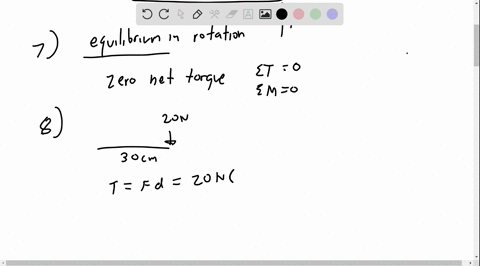 7) equilibrium in rotation
zero net torque ΣT = 0
ΣM = 0
8)
20N
30cm
T = Fd = 20N(